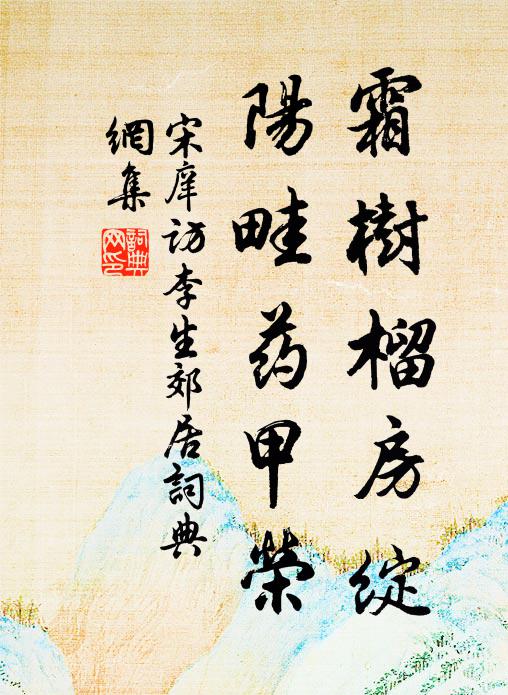 霜樹榴房綻
陽畦药甲榮
宋庠访李生郊居詞典
網集
詞典網印